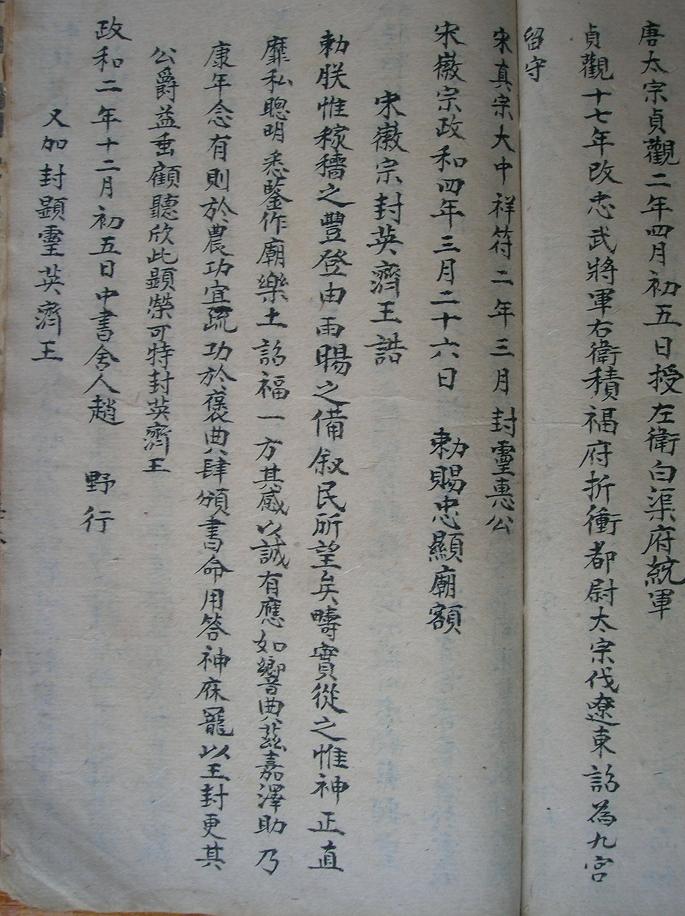 唐太宗貞觀二年四月初五日授左衛白渠府統軍
貞觀十七年改忠武將軍右衛積福府折衝都尉太宗伐遼東詔為九宮
留守
宋真宗大中祥符二年三月封靈惠公
宋徽宗政和四年三月二十六日 勅賜忠顯廟額
宋徽宗封英濟王誥
勅朕惟稼穡之豐登由雨暘之備叙民所望矣疇實從之惟神正直
靡私聰明悉鑒作廟樂土詒福一方其感以誠有應如響典茲嘉澤助乃
康年念有則於農功宜疏功於褒典肆頒書命用答神庥寵以王封更其
公爵益垂顧聽欣此顯榮可特封英濟王
政和二年十二月初五日中書舍人趙 野行
又加封顯靈英濟王